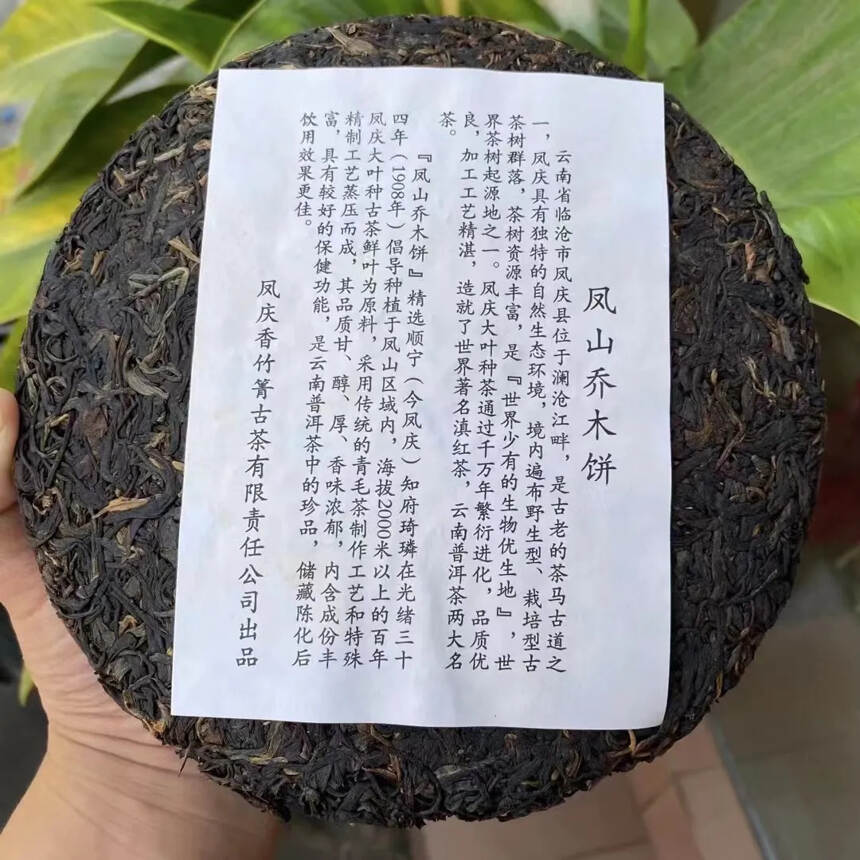 凤山乔木饼
云南省临沧市凤庆县位于澜沧江畔，是古老的茶马古道之
一，凤庆具有独特的自然生态环境，境内遍布野生型、栽培型古
茶树群落，茶树资源丰富，是『世界少有的生物优生地』，世
界茶树起源地之一。凤庆大叶种茶通过千万年繁衍进化，品质优
良，加工工艺精湛，造就了世界著名滇红茶，云南普洱茶两大名
茶。
『凤山乔木饼』精选顺宁（今凤庆）知府琦璘在光绪三十
四年（1908年）倡导种植于凤山区域内，海拔2000米以上的百年
凤庆大叶种古茶鲜叶为原料，采用传统的青毛茶制作工艺和特殊
精制工艺蒸压而成，其品质甘、醇、厚、香味浓郁，内含成份丰
富，具有较好的保健功能，是云南普洱茶中的珍品，储藏陈化后
饮用效果更佳。
凤庆香竹箐古茶有限责任公司出品